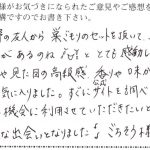 様がお気づきになられたご意見やご感想を
構ですのでお書き下さい。
の友人から巣ごもりのセットを頂いて、
があるのね」とても感動し
や見た目の高級感、香りや味が
気に入りました。すぐにサイトを調べ
機会に利用させていただきたいと
な出会いとなりました。ごちそう様